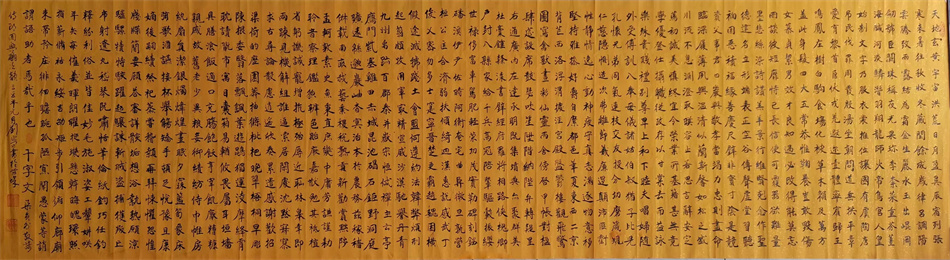 天地玄黃宇宙洪荒日月盈昃辰宿列張
寒來暑往秋收冬藏閏餘成歲律呂調陽
雲騰致雨露結為霜金生麗水玉出崑岡
劍號巨闕珠稱夜光果珍李柰菜重芥薑
海鹹河淡鱗潛羽翔龍師火帝鳥官人皇
始制文字乃服衣裳推位讓國有虞陶唐
弔民伐罪周發殷湯坐朝問道垂拱平章
愛育黎首臣伏戎羌遐邇壹體率賓歸王
鳴鳳在樹白駒食場化被草木賴及萬方
蓋此身髮四大五常恭惟鞠養豈敢毀傷
女慕貞絜男效才良知過必改得能莫忘
罔談彼短靡恃己長信使可覆器欲難量
墨悲絲染詩讚羔羊景行維賢克念作聖
德建名立形端表正空谷傳聲虛堂習聽
禍因惡積福緣善慶尺璧非寶寸陰是競
資父事君曰嚴與敬孝當竭力忠則盡命
臨深履薄夙興溫凊似蘭斯馨如松之盛
川流不息淵澄取映容止若思言辭安定
篤初誠美慎終宜令榮業所基籍甚無竟
學優登仕攝職從政存以甘棠去而益詠
樂殊貴賤禮別尊卑上和下睦夫唱婦隨
外受傅訓入奉母儀諸姑伯叔猶子比兒
孔懷兄弟同氣連枝交友投分切磨箴規
仁慈隱惻造次弗離節義廉退顛沛匪虧
性靜情逸心動神疲守真志滿逐物意移
堅持雅操好爵自縻都邑華夏東西二京
背邙面洛浮渭據涇宮殿盤鬱樓觀飛驚
圖寫禽獸畫彩仙靈丙舍傍啟甲帳對楹
肆筵設席鼓瑟吹笙升階納陛弁轉疑星
右通廣內左達承明既集墳典亦聚群英
杜稿鍾隸漆書壁經府羅將相路俠槐卿
戶封八縣家給千兵高冠陪輦驅轂振纓
世祿侈富車駕肥輕策功茂實勒碑刻銘
磻溪伊尹佐時阿衡奄宅曲阜微旦孰營
桓公匡合濟弱扶傾綺迴漢惠說感武丁
俊乂密勿多士寔寧晉楚更霸趙魏困橫
假途滅虢踐土會盟何遵約法韓弊煩刑
起翦頗牧用軍最精宣威沙漠馳譽丹青
九州禹跡百郡秦并嶽宗恆岱禪主云亭
雁門紫塞雞田赤城昆池碣石鉅野洞庭
曠遠綿邈巖岫杳冥治本於農務茲稼穡
俶載南畝我藝黍稷稅熟貢新勸賞黜陟
孟軻敦素史魚秉直庶幾中庸勞謙謹敕
聆音察理鑑貌辨色貽厥嘉猷勉其祗植
省躬譏誡寵增抗極殆辱近恥林皋幸即
兩疏見機解組誰逼索居閒處沉默寂寥
求古尋論散慮逍遙欣奏累遣慼謝歡招
渠荷的歷園莽抽條枇杷晚翠梧桐早凋
陳根委翳落葉飄颻遊鯤獨運凌摩絳霄
耽讀玩市寓目囊箱易輶攸畏屬耳垣牆
具膳餐飯適口充腸飽飫烹宰飢厭糟糠
親戚故舊老少異糧妾御績紡侍巾帷房
紈扇圓潔銀燭煒煌晝眠夕寐藍筍象床
弦歌酒宴接杯舉觴矯手頓足悅豫且康
嫡後嗣續祭祀蒸嘗稽顙再拜悚懼恐惶
牋牒簡要顧答審詳骸垢想浴執熱願涼
驢騾犢特駭躍超驤誅斬賊盜捕獲叛亡
布射僚丸嵇琴阮嘯恬筆倫紙鈞巧任釣
釋紛利俗並皆佳妙毛施淑姿工顰妍笑
年矢每催曦暉朗曜璇璣懸斡晦魄環照
指薪修祜永綏吉劭矩步引領俯仰廊廟
束帶矜莊徘徊瞻眺孤陋寡聞愚蒙等誚
謂語助者焉哉乎也 千字文